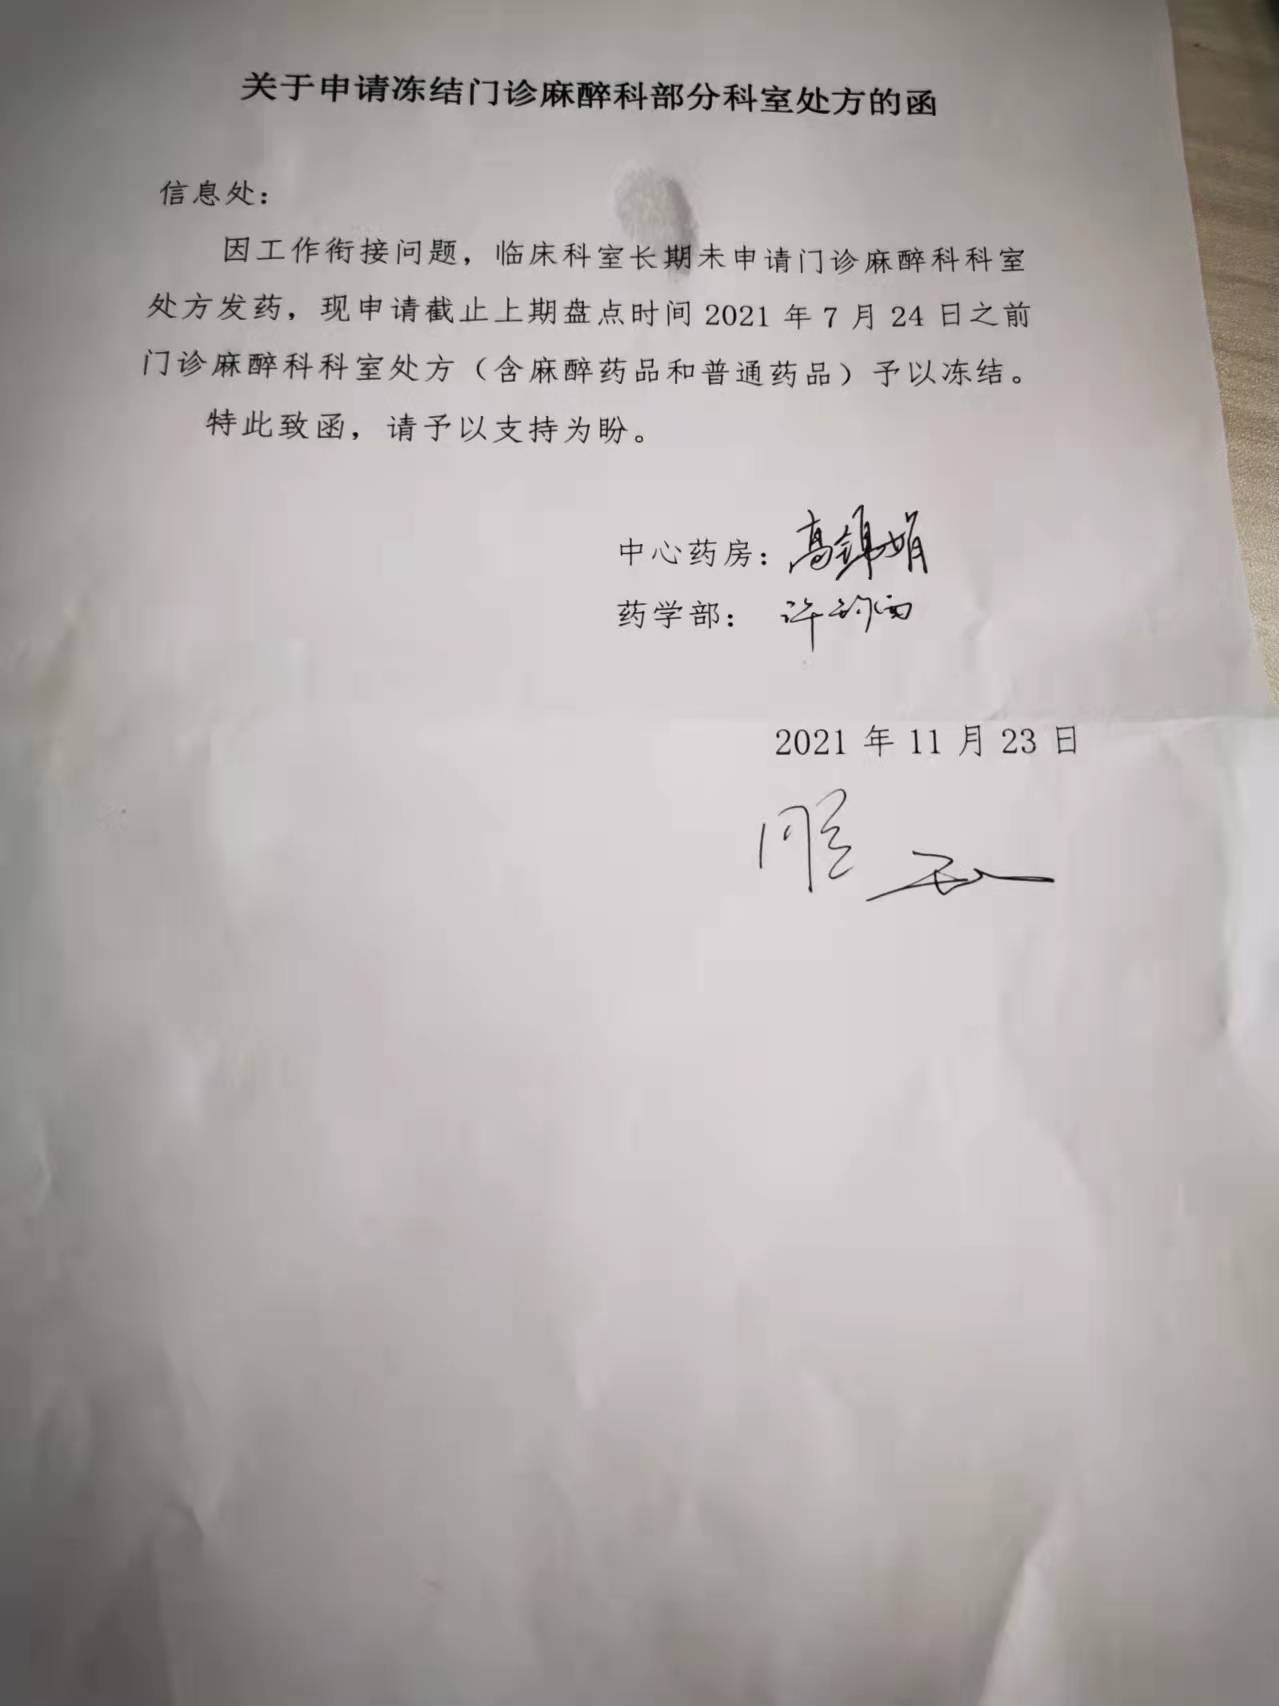 关于申请冻结门诊麻醉科部分科室处方的函
信息处：
因工作衔接问题，临床科室长期未申请门诊麻醉科科室
处方发药，现申请截止上期盘点时间 2021 年 7 月 24 日之前
门诊麻醉科科室处方（含麻醉药品和普通药品）予以冻结。
特此致函，请予以支持为盼。
中心药房：高锦娟
药学部：许
2021 年 11 月 23 日